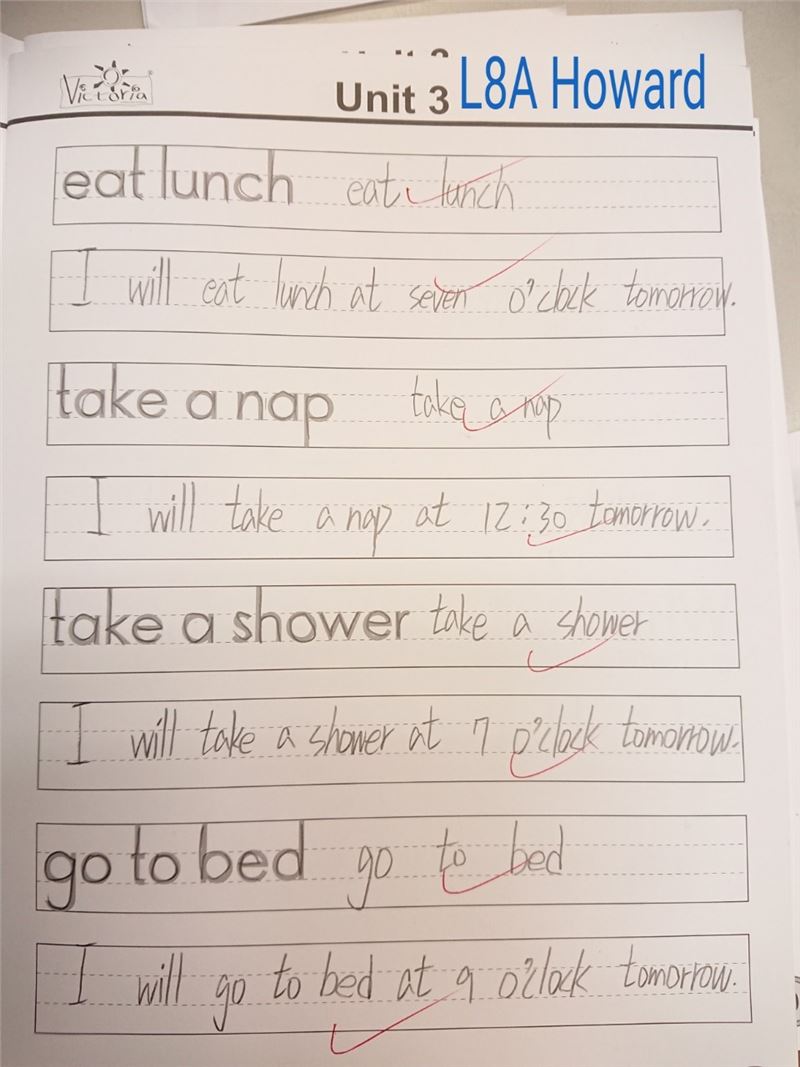 Victoria
Unit 3 L8A Howard
eat lunch eat lunch
I will eat lunch at seven o'clock tomorrow.
take a nap take a nap
I will take a nap at 12:30 tomorrow.
take a shower take a shower
I will take a shower at 7 o'clock tomorrow.
go to bed go to bed
I will go to bed at 9 o'clock tomorrow.